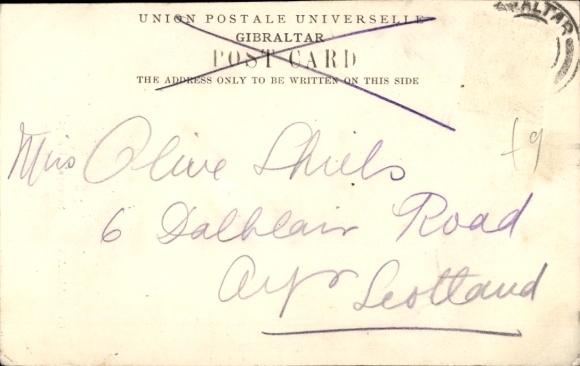 UNION POSTALE UNIVERSELLE
GIBRALTAR
POST CARD
THE ADDRESS ONLY TO BE WRITTEN ON THIS SIDE
GIBRALTAR
Miss Olive Shiels
f9
6 Dalblair Road
Ayr Scotland